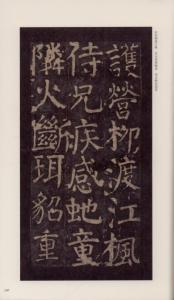 護營柳渡江楓
待兄疾感虵童
隣火斷珥貂重